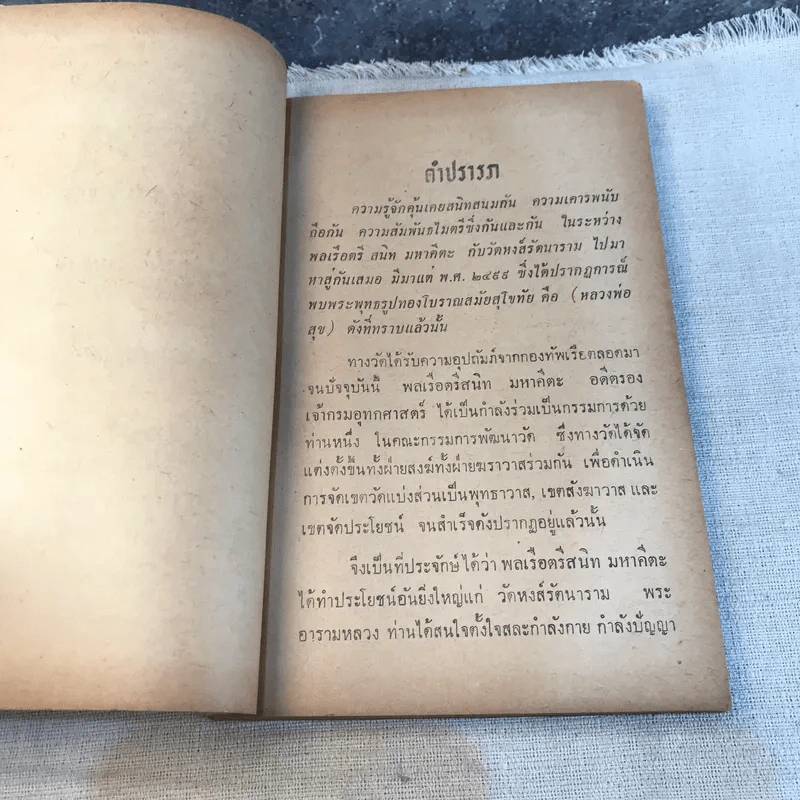 คำปรารภ
ความรู้จักคุ้นเคยสนิทสนมกัน ความเคารพนับ
ถือกัน ความสัมพันธไมตรีซึ่งกันและกัน ในระหว่าง
พลเรือตรี สนิท มหาคีตะ กับวัดหงส์รัตนาราม ไปมา
หาสู่กันเสมอ มีมาแต่ พ.ศ. ๒๔๙๙ ซึ่งได้ปรากฏการณ์
พบพระพุทธรูปทองโบราณสมัยสุโขทัย คือ (หลวงพ่อ
สุข) ดังที่ทราบแล้วนั้น
ทางวัดได้รับความอุปถัมภ์จากกองทัพเรือตลอดมา
จนปัจจุบันนี้ พลเรือตรีสนิท มหาคีตะ อดีตรอง
เจ้ากรมอุทกศาสตร์ ได้เป็นกำลังร่วมเป็นกรรมการด้วย
ท่านหนึ่ง ในคณะกรรมการพัฒนาวัด ซึ่งทางวัดได้จัด
แต่งตั้งขึ้นทั้งฝ่ายสงฆ์ทั้งฝ่ายฆราวาสร่วมกัน เพื่อดำเนิน
การจัดเขตวัดแบ่งส่วนเป็นพุทธาวาส, เขตสังฆาวาส และ
เขตจัดประโยชน์ จนสำเร็จดังปรากฏอยู่แล้วนั้น
จึงเป็นที่ประจักษ์ได้ว่า พลเรือตรีสนิท มหาคีตะ
ได้ทำประโยชน์อันยิ่งใหญ่แก่ วัดหงส์รัตนาราม พระ
อารามหลวง ท่านได้สนใจตั้งใจสละกำลังกาย กำลังปัญญา